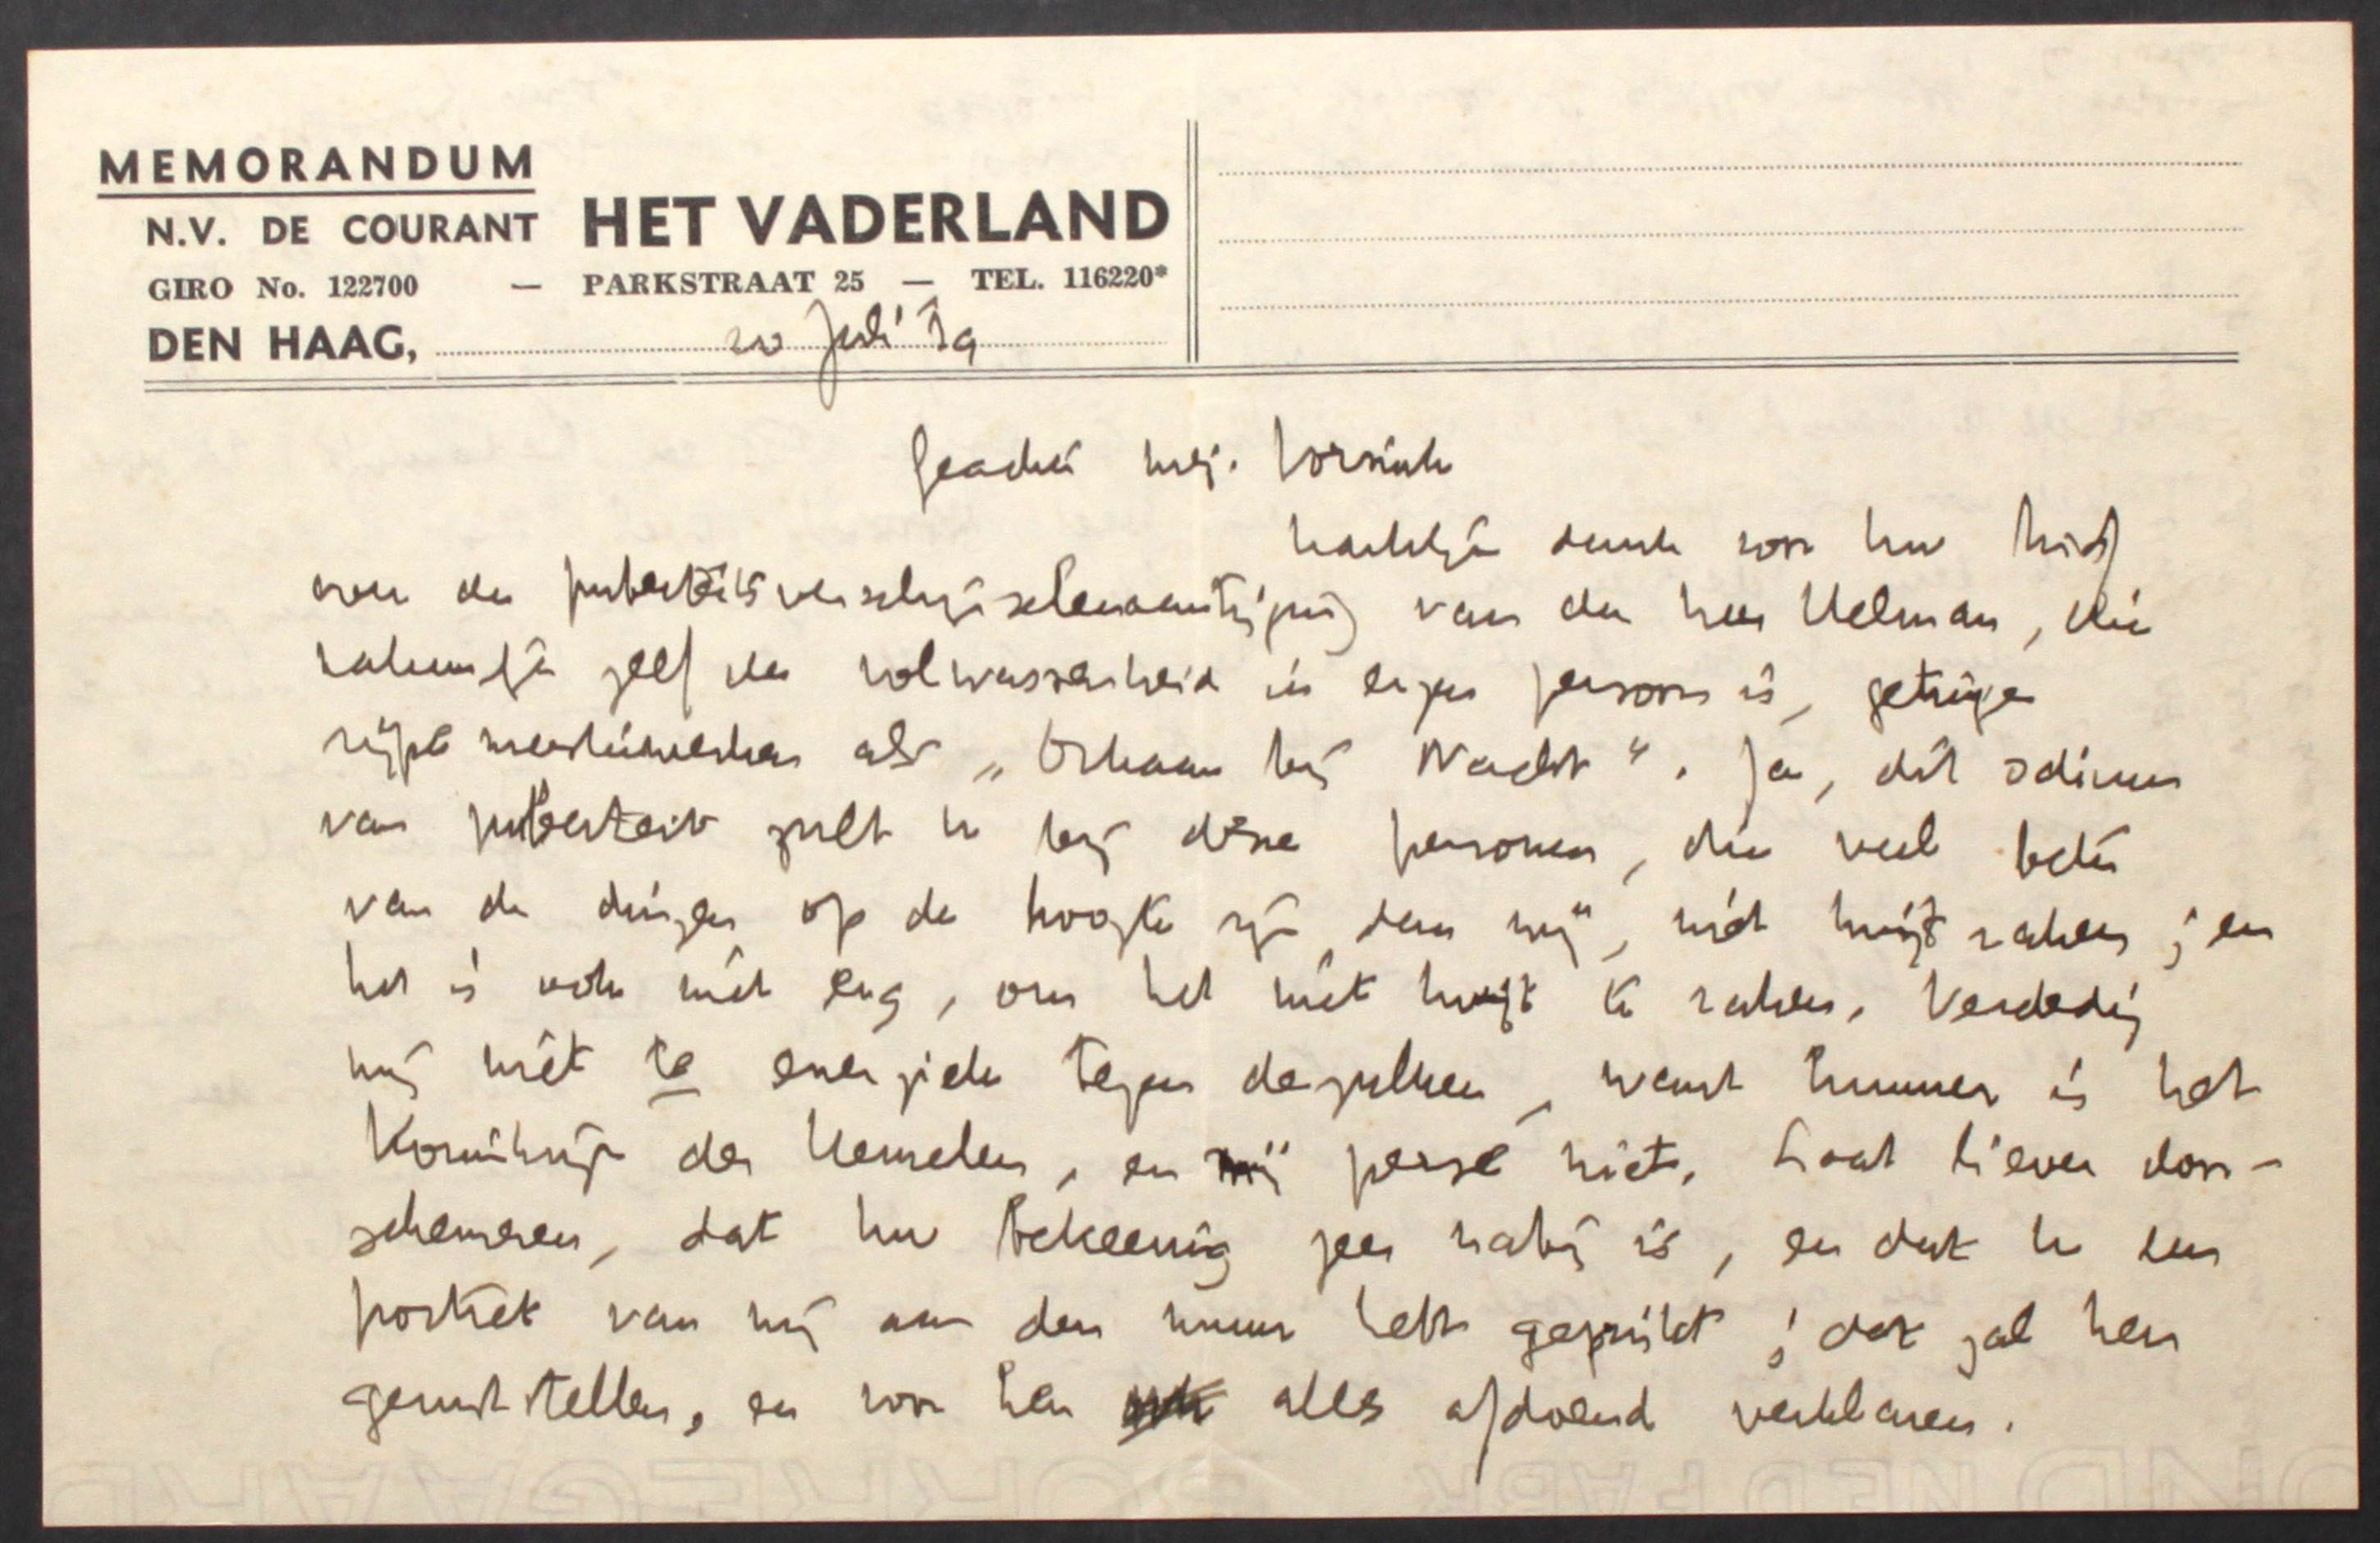 MEMORANDUM
N.V. DE COURANT HET VADERLAND
GIRO No. 122700 — PARKSTRAAT 25 — TEL. 116220*
DEN HAAG, 20 Juli '39
Geachte mej.
Hartelijk dank voor Uw brief
over de puberteitsverschijnselenaantijging van den heer Helman, die
natuurlijk zelf de volwassenheid in eigen persoon is, getuige
rijpe meesterwerken als „Orkaan bij Nacht”. Ja, dit odium
van puberteit zult U bij deze personen, die veel beter
van de dingen op de hoogte zijn dan wij, niet kwijt raken; en
het is ook niet erg, om het niet kwijt te raken. Verdedig
mij niet te energiek tegen dezulken, want hunner is het
Koninkrijk der Hemelen, en mij perse niet. Laat liever door-
schemeren, dat Uw bekeering zeer nabij is, en dat U een
portret van mij aan den muur hebt geprikt; dat zal hen
geruststellen, en voor hen alles afdoend verklaren.